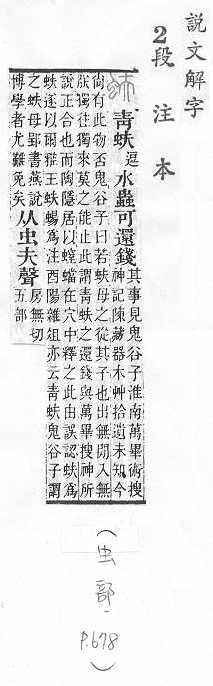 說文解字
2段注本
蚨 青蚨逗水蟲可還錢其事見鬼谷子淮南萬畢術搜
神記陳藏器本艸拾遺未知今
尙有此物否鬼谷子曰若蚨母之從其子也出無閒入無
朕獨往獨來莫之能止此謂青蚨之還錢與萬畢搜神所
說正合也而陶隱居以螳蟷在穴中釋之此由誤認蚨爲
蛈遂以爾雅王蛈蝪爲注酉陽雜俎亦云青蚨鬼谷子謂
之蚨母郢書燕說
博學者尤難免矣从虫夫聲房無切
五部
(虫部 P.678)